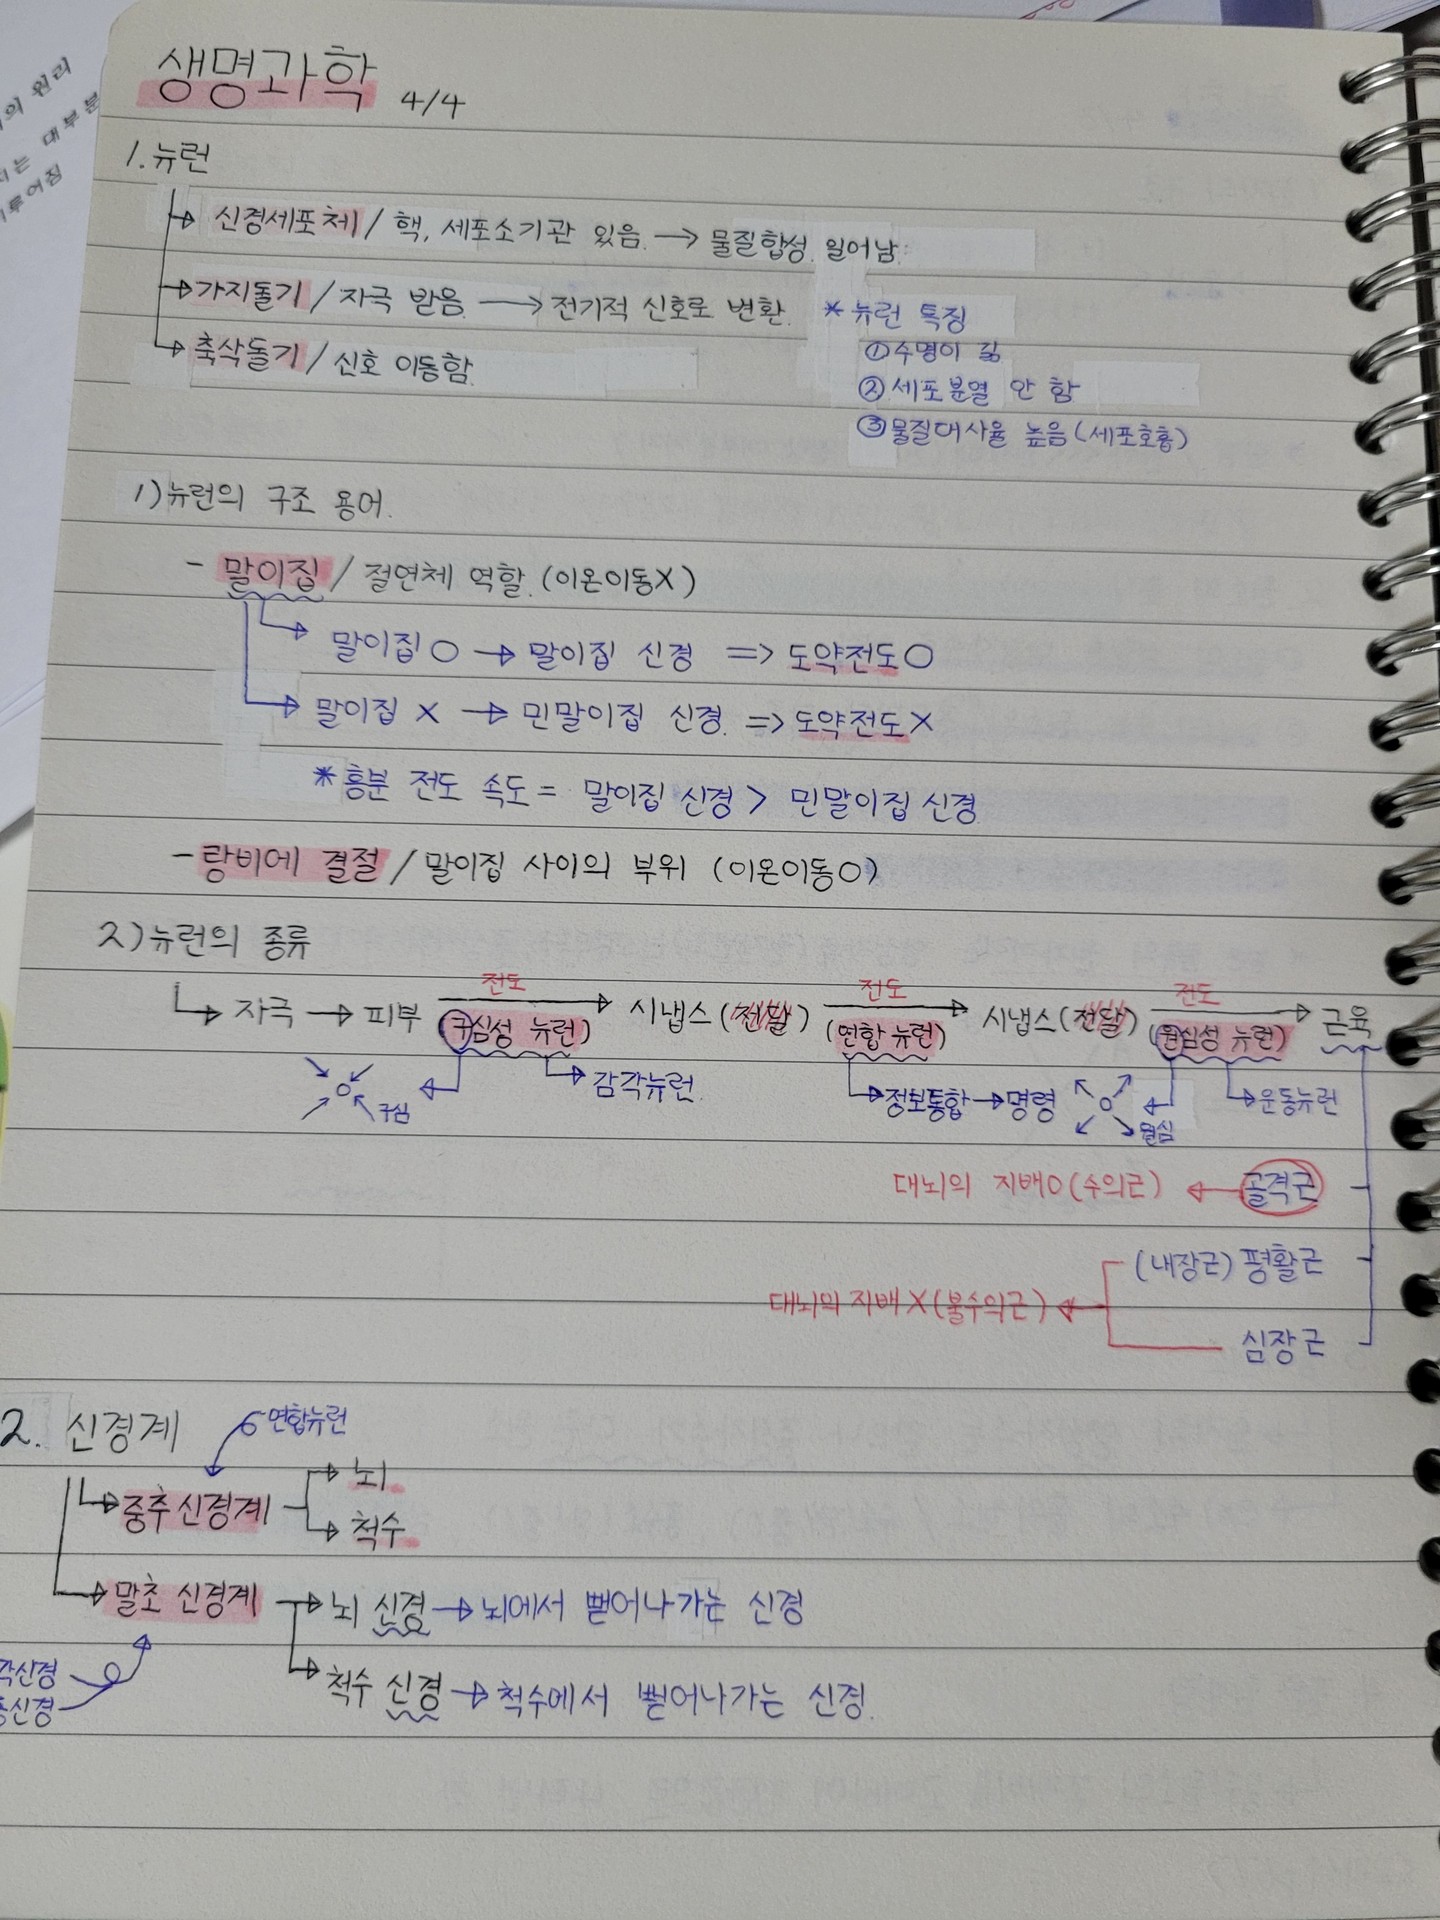 의 원리
는 대부분
이루어짐
생명과학 4/4
1. 뉴런
→ 신경세포체 / 핵, 세포소기관 있음. → 물질합성 일어남.
→ 가지돌기 / 자극 받음. → 전기적 신호로 변환.
→ 축삭돌기 / 신호 이동함.
* 뉴런 특징
① 수명이 긺
② 세포분열 안 함
③ 물질대사율 높음 (세포호흡)
1) 뉴런의 구조 용어.
- 말이집 / 절연체 역할. (이온이동X)
→ 말이집 O → 말이집 신경 => 도약전도 O
→ 말이집 X → 민말이집 신경. => 도약전도 X
* 흥분 전도 속도 = 말이집 신경 > 민말이집 신경
- 랑비에 결절 / 말이집 사이의 부위 (이온이동O)
2) 뉴런의 종류
전도 전도 전도
→ 자극 → 피부 → 시냅스 (전달) → 시냅스 (전달) → 근육
(구심성 뉴런) (연합 뉴런) (원심성 뉴런)
구심 → 감각뉴런. → 정보통합 → 명령 원심 → 운동뉴런
대뇌의 지배O (수의근) ← 골격근
(내장근) 평활근
대뇌의 지배 X (불수의근) ←
심장근
2. 신경계
연합뉴런
→ 중추 신경계 → 뇌
→ 척수
→ 말초 신경계 → 뇌 신경 → 뇌에서 뻗어나가는 신경
각신경
동신경
→ 척수 신경 → 척수에서 뻗어나가는 신경.